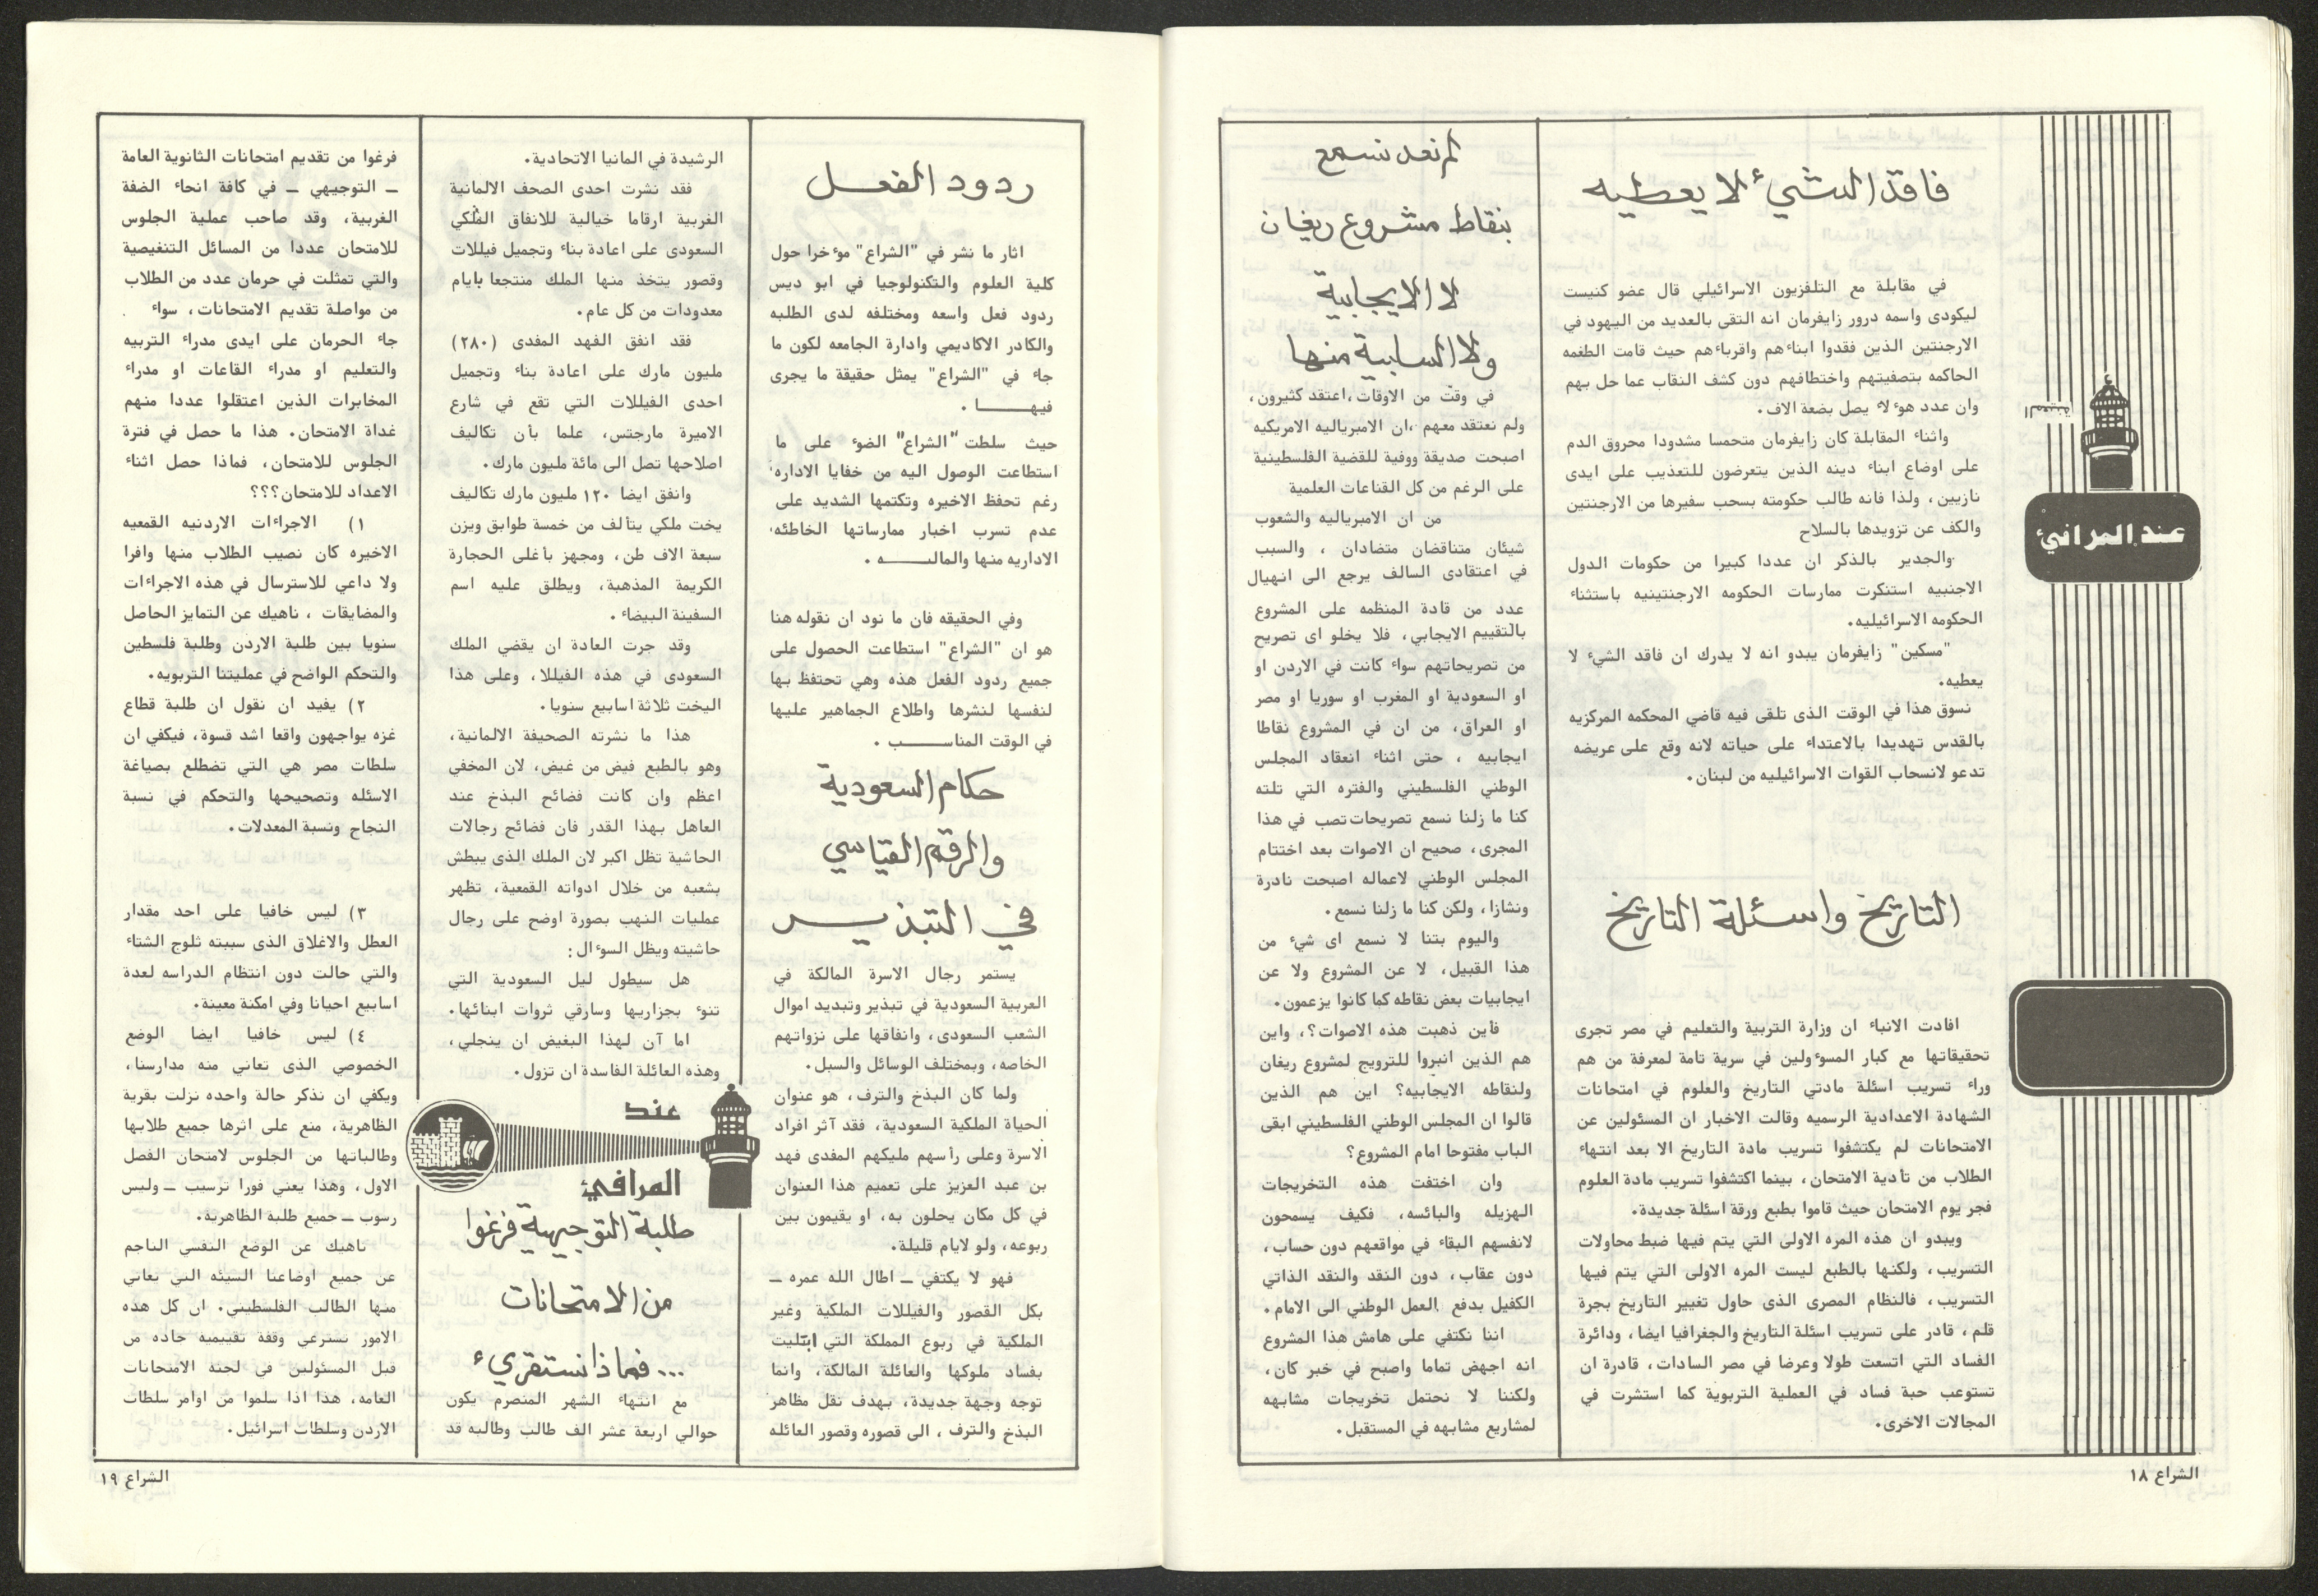 فاقد الشيء لا يعطيه
في مقابلة مع التلفزيون الاسرائيلي قال عضو كنيست
ليكودى واسمه درور زايفرمان انه التقى بالعديد من اليهود في
الارجنتين الذين فقدوا ابناءهم واقرباءهم حيث قامت الطغمه
الحاكمه بتصفيتهم واختطافهم دون كشف النقاب عما حل بهم
وان عدد هوءلاء يصل بضعة الاف.
واثناء المقابلة كان زايفرمان متحمسا مشدودا محروق الدم
على اوضاع ابناء دينه الذين يتعرضون للتعذيب على ايدى
نازيين، ولذا فانه طالب حكومته بسحب سفيرها من الارجنتين
والكف عن تزويدها بالسلاح
والجدير بالذكر ان عددا كبيرا من حكومات الدول
الاجنبيه استنكرت ممارسات الحكومه الارجنتينيه باستثناء
الحكومه الاسرائيليه.
"مسكين" زايفرمان يبدو انه لا يدرك ان فاقد الشيء لا
يعطيه.
نسوق هذا في الوقت الذى تلقى فيه قاضي المحكمه المركزيه
بالقدس تهديدا بالاعتداء على حياته لانه وقع على عريضه
تدعو لانسحاب القوات الاسرائيليه من لبنان.
التاريخ واسئلة التاريخ
افادت الانباء ان وزارة التربية والتعليم في مصر تجرى
تحقيقاتها مع كبار المسوءولين في سرية تامة لمعرفة من هم
وراء تسريب اسئلة مادتي التاريخ والعلوم في امتحانات
الشهادة الاعدادية الرسميه وقالت الاخبار ان المسئولين عن
الامتحانات لم يكتشفوا تسريب مادة التاريخ الا بعد انتهاء
الطلاب من تأدية الامتحان، بينما اكتشفوا تسريب مادة العلوم
فجر يوم الامتحان حيث قاموا بطبع ورقة اسئلة جديدة.
ويبدو ان هذه المره الاولى التي يتم فيها ضبط محاولات
التسريب، ولكنها بالطبع ليست المره الاولى التي يتم فيها
التسريب، فالنظام المصرى الذى حاول تغيير التاريخ بجرة
قلم، قادر على تسريب اسئلة التاريخ والجغرافيا ايضا، ودائرة
الفساد التي اتسعت طولا وعرضا في مصر السادات، قادرة ان
تستوعب حبة فساد في العملية التربوية كما استشرت في
المجالات الاخرى.
عند المرافئ
لم نعد نسمع
بنقاط مشروع ريغان
لا الايجابية
ولا السلبية منها
في وقت من الاوقات، اعتقد كثيرون،
ولم نعتقد معهم، ان الامبرياليه الامريكيه
اصبحت صديقة ووفية للقضية الفلسطينية
على الرغم من كل القناعات العلمية
من ان الامبرياليه والشعوب
شيئان متناقضان متضادان ، والسبب
في اعتقادى السالف يرجع الى انهيال
عدد من قادة المنظمه على المشروع
بالتقييم الايجابي، فلا يخلو اى تصريح
من تصريحاتهم سواء كانت في الاردن او
او السعودية او المغرب او سوريا او مصر
او العراق، من ان في المشروع نقاطا
ايجابيه ، حتى اثناء انعقاد المجلس
الوطني الفلسطيني والفتره التي تلته
كنا ما زلنا نسمع تصريحات تصب في هذا
المجرى، صحيح ان الاصوات بعد اختتام
المجلس الوطني لاعماله اصبحت نادرة
ونشازا، ولكن كنا ما زلنا نسمع.
واليوم بتنا لا نسمع اى شيء من
هذا القبيل، لا عن المشروع ولا عن
ايجابيات بعض نقاطه كما كانوا يزعمون.
فأين ذهبت هذه الاصوات؟، واين
هم الذين انبروا للترويج لمشروع ريغان
ولنقاطه الايجابيه؟ اين هم الذين
قالوا ان المجلس الوطني الفلسطيني ابقى
الباب مفتوحا امام المشروع؟
وان اختفت هذه التخريجات
الهزيله والبائسه، فكيف يسمحون
لانفسهم البقاء في مواقعهم دون حساب،
دون عقاب، دون النقد والنقد الذاتي
الكفيل بدفع العمل الوطني الى الامام.
اننا نكتفي على هامش هذا المشروع
انه اجهض تماما واصبح في خبر كان،
ولكننا لا نحتمل تخريجات مشابهه
لمشاريع مشابهه في المستقبل.
الشراع ١٨
ردود الفعل
اثار ما نشر في "الشراع" موءخرا حول
كلية العلوم والتكنولوجيا في ابو ديس
ردود فعل واسعه ومختلفه لدى الطلبه
والكادر الاكاديمي وادارة الجامعه لكون ما
جاء في "الشراع" يمثل حقيقة ما يجرى
فيهـــــا .
حيث سلطت "الشراع" الضوء على ما
استطاعت الوصول اليه من خفايا الاداره
رغم تحفظ الاخيره وتكتمها الشديد على
عدم تسرب اخبار ممارساتها الخاطئه
الاداريه منها والماليـــه .
وفي الحقيقه فان ما نود ان نقوله هنا
هو ان "الشراع" استطاعت الحصول على
جميع ردود الفعل هذه وهي تحتفظ بها
لنفسها لنشرها واطلاع الجماهير عليها
في الوقت المناســـب .
حكام السعودية
والرقم القياسي
في التبذيــر
يستمر رجال الاسرة المالكة في
العربية السعودية في تبذير وتبديد اموال
الشعب السعودى، وانفاقها على نزواتهم
الخاصه، وبمختلف الوسائل والسبل.
ولما كان البذخ والترف، هو عنوان
الحياة الملكية السعودية، فقد آثر افراد
الاسرة وعلى رأسهم مليكهم المفدى فهد
بن عبد العزيز على تعميم هذا العنوان
في كل مكان يحلون به، او يقيمون بين
ربوعه، ولو لايام قليلة.
فهو لا يكتفي ــ اطال الله عمره ــ
بكل القصور والفيللات الملكية وغير
الملكية في ربوع المملكة التي ابتليت
بفساد ملوكها والعائلة المالكة، وانما
توجه وجهة جديدة، بهدف نقل مظاهر
البذخ والترف ، الى قصوره وقصور العائله
الرشيدة في المانيا الاتحادية.
فقد نشرت احدى الصحف الالمانية
الغربية ارقاما خيالية للانفاق الملكي
السعودى على اعادة بناء وتجميل فيللات
وقصور يتخذ منها الملك منتجعا بايام
معدودات من كل عام.
فقد انفق الفهد المفدى (٢٨٠)
مليون مارك على اعادة بناء وتجميل
احدى الفيللات التي تقع في شارع
الاميرة مارجتس، علما بأن تكاليف
اصلاحها تصل الى مائة مليون مارك.
وانفق ايضا ١٢٠ مليون مارك تكاليف
يخت ملكي يتألف من خمسة طوابق ويزن
سبعة الاف طن، ومجهز بأغلى الحجارة
الكريمة المذهبة، ويطلق عليه اسم
السفينة البيضاء.
وقد جرت العادة ان يقضي الملك
السعودى في هذه الفيللا، وعلى هذا
اليخت ثلاثة اسابيع سنويا.
هذا ما نشرته الصحيفة الالمانية،
وهو بالطبع فيض من غيض، لان المخفي
اعظم وان كانت فضائح البذخ عند
العاهل بهذا القدر فان فضائح رجالات
الحاشية تظل اكبر لان الملك الذى يبطش
بشعبه من خلال ادواته القمعية، تظهر
عمليات النهب بصورة اوضح على رجال
حاشيته ويظل السوءال :
هل سيطول ليل السعودية التي
تنوء بجزاريها وسارقي ثروات ابنائها.
اما آن لهذا البغيض ان ينجلي،
وهذه العائلة الفاسدة ان تزول.
عند
المرافئ
طلبة التوجيهية فرغوا
من الامتحانات
... فماذا نستقريء
مع انتهاء الشهر المنصرم يكون
حوالي اربعة عشر الف طالب وطالبه قد
فرغوا من تقديم امتحانات الثانوية العامة
ــ التوجيهي ــ في كافة انحاء الضفة
الغربية، وقد صاحب عملية الجلوس
للامتحان عددا من المسائل التنغيصية
والتي تمثلت في حرمان عدد من الطلاب
من مواصلة تقديم الامتحانات، سواء
جاء الحرمان على ايدى مدراء التربيه
والتعليم او مدراء القاعات او مدراء
المخابرات الذين اعتقلوا عددا منهم
غداة الامتحان. هذا ما حصل في فترة
الجلوس للامتحان، فماذا حصل اثناء
الاعداد للامتحان؟؟؟
١) الاجراءات الاردنيه القمعيه
الاخيره كان نصيب الطلاب منها وافرا
ولا داعي للاسترسال في هذه الاجراءات
والمضايقات ، ناهيك عن التمايز الحاصل
سنويا بين طلبة الاردن وطلبة فلسطين
والتحكم الواضح في عمليتنا التربويه.
٢) يفيد ان نقول ان طلبة قطاع
غزه يواجهون واقعا اشد قسوة، فيكفي ان
سلطات مصر هي التي تضطلع بصياغة
الاسئله وتصحيحها والتحكم في نسبة
النجاح ونسبة المعدلات.
٣) ليس خافيا على احد مقدار
العطل والاغلاق الذى سببته ثلوج الشتاء
والتي حالت دون انتظام الدراسه لعدة
اسابيع احيانا وفي امكنة معينة.
٤) ليس خافيا ايضا الوضع
الخصوصي الذى تعاني منه مدارسنا،
ويكفي ان نذكر حالة واحده نزلت بقرية
الظاهرية، منع على اثرها جميع طلابها
وطالباتها من الجلوس لامتحان الفصل
الاول، وهذا يعني فورا ترسيب ــ وليس
رسوب ــ جميع طلبة الظاهرية.
ناهيك عن الوضع النفسي الناجم
عن جميع اوضاعنا السيئه التي يعاني
منها الطالب الفلسطيني. ان كل هذه
الامور تسترعي وقفة تقييميه جاده من
قبل المسئولين في لجنة الامتحانات
العامه، هذا اذا سلموا من اوامر سلطات
الاردن وسلطات اسرائيل.
الشراع ١٩